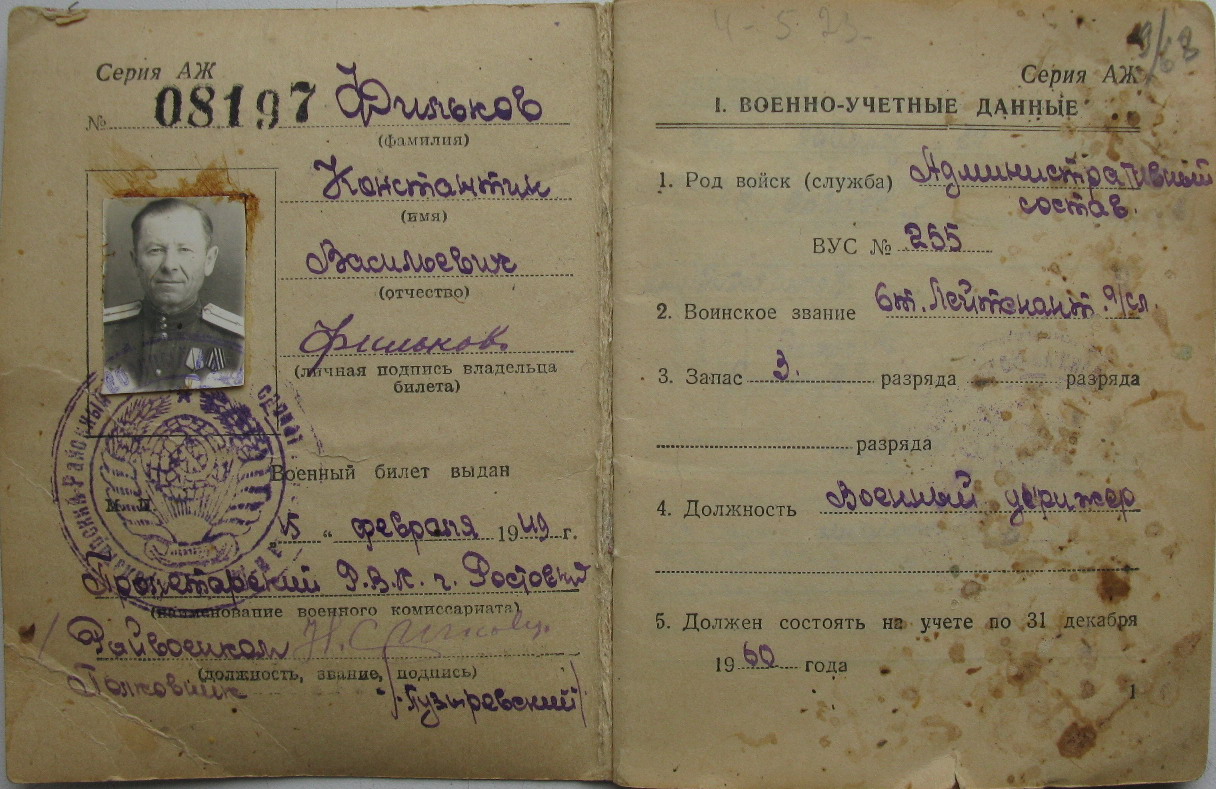 Серия АЖ
№ 08197 Фильков
(фамилия)
Константин
(имя)
Васильевич
(отчество)
Фильков.
(личная подпись владельца
билета)
Военный билет выдан
М. П.
"15" февраля 1949 г.
Пролетарский Р.В.К. г. Ростов н/Д
(наименование военного комиссариата)
Райвоенком
(должность, звание, подпись)
Полковник /Пузыревский/
4-5-23
Серия АЖ
I. ВОЕННО-УЧЕТНЫЕ ДАННЫЕ
1. Род войск (служба) Административный
состав.
ВУС № 255
2. Воинское звание Ст. Лейтенант а/сл.
3. Запас 3. разряда разряда
разряда
4. Должность Военный дирижер
5. Должен состоять на учете по 31 декабря
1960 года
1